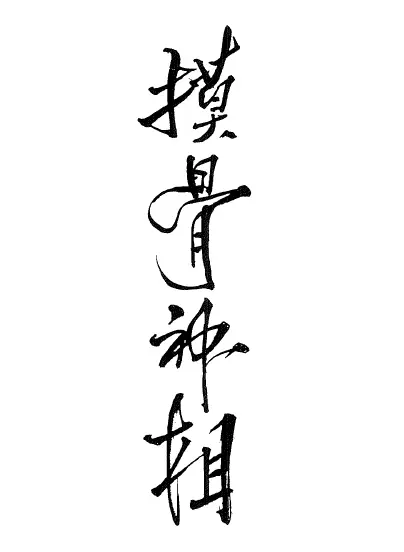 摸骨神相